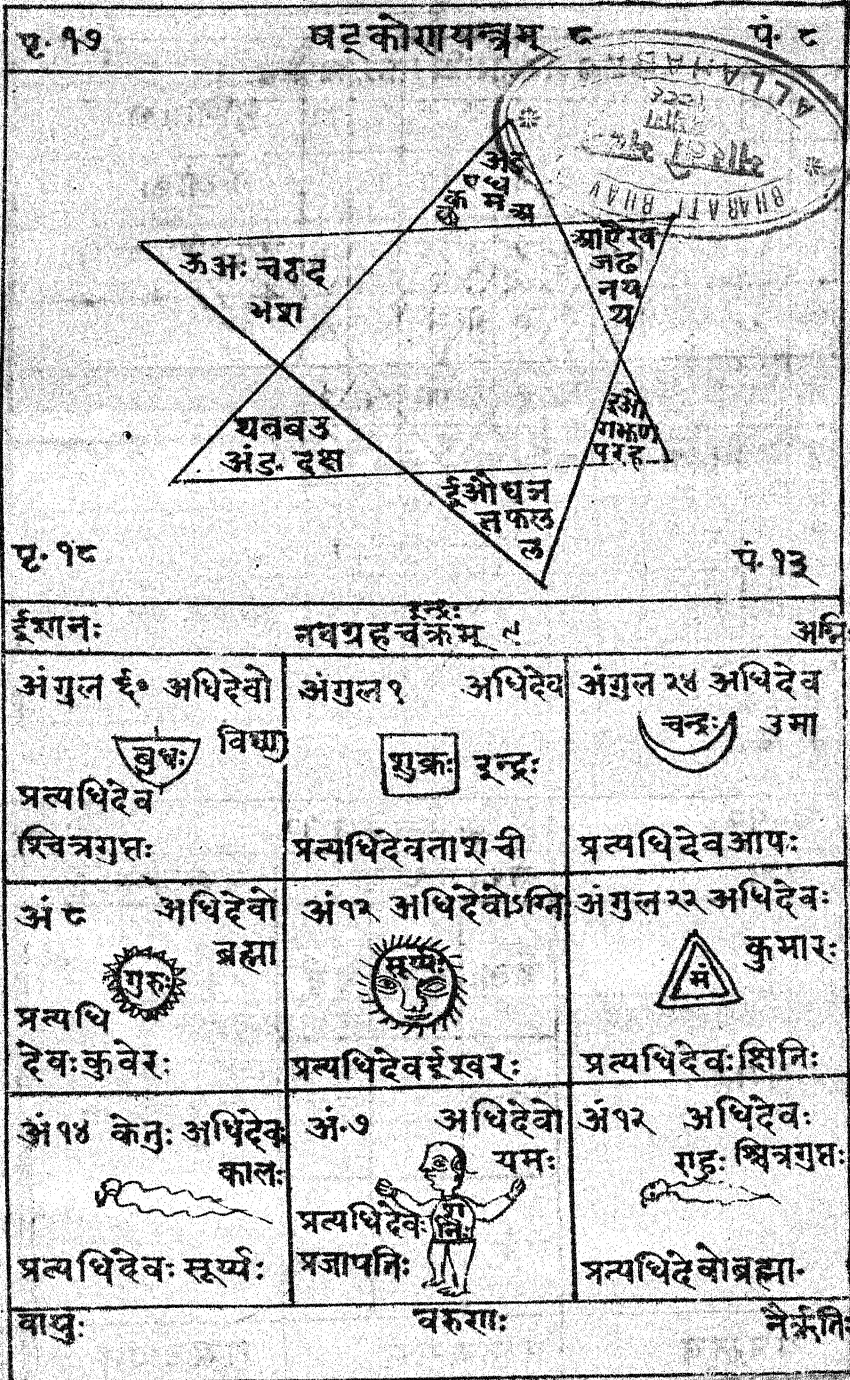 पृ. १७ षट्कोणयन्त्रम् ८ पं. ८
ALLAHABAD
BHARATI BHAV
ऊ अः च ठ द
भ श
आ ऐ ख
ज ढ
न य
य
इ ओ
ग झ ण
प र ह
थ ब व उ
अं ङ. द क्ष
ई औ घ ञ
त फ ल
ल
पृ. १८ पं. १३
ईशानः इन्द्रः अग्नि
नवग्रहचक्रम् ९
अंगुल अधिदेवो
बुधः
प्रत्यधिदेव
श्चित्रगुप्तः
अंगुल ९ अधिदेव
शुक्रः इन्द्रः
प्रत्यधिदेवताशची
अंगुल २४ अधिदेव
चन्द्रः उमा
प्रत्यधिदेवआपः
अं ८ अधिदेवो
ब्रह्मा
गुरुः
प्रत्यधि
देवः कुवेरः
अं१२ अधिदेवोऽग्नि
सूर्य्यः
प्रत्यधिदेवईश्वरः
अंगुल २२ अधिदेवः
कुमारः
मं
प्रत्यधिदेवः क्षितिः
अं १४ केतुः अधिदेवः
कालः
प्रत्यधिदेवः सूर्य्यः
अं.७ अधिदेवो
यमः
प्रत्यधिदेवः शनिः
प्रजापतिः
अं१२ अधिदेवः
राहुः श्चित्रगुप्तः
प्रत्यधिदेवोब्रह्मा.
वायुः वरुणः नैर्ऋतिः